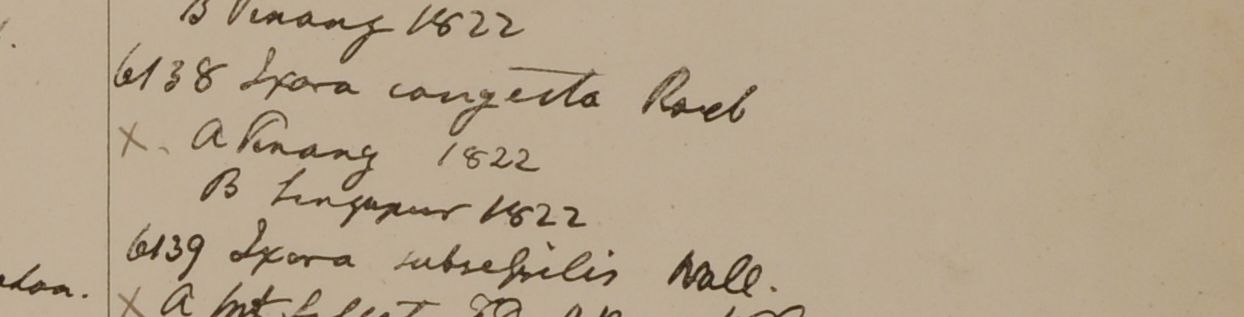 B Penang 1822
6138 Ixora congesta Roxb
X. A Penang 1822
B Singapur 1822
6139 Ixora subsessilis Wall.
X A